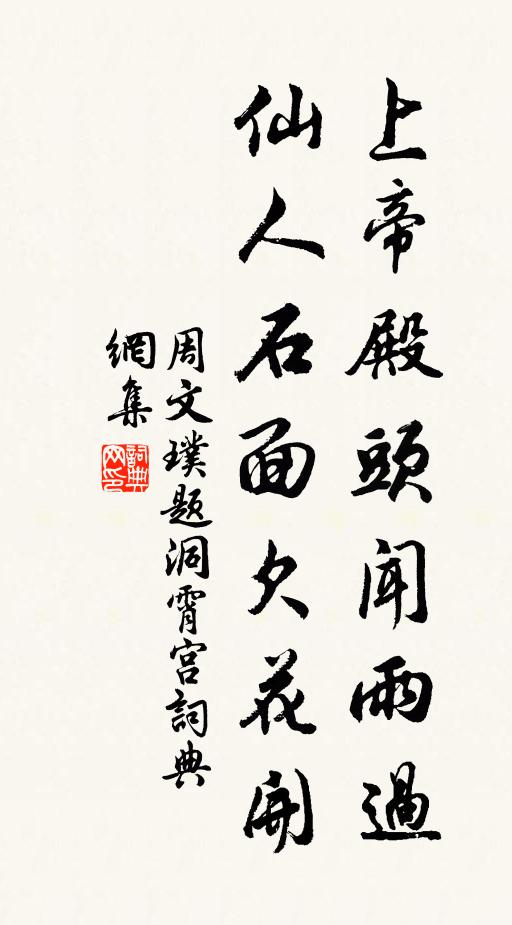 上帝殿頭聞雨過
仙人石面欠花開
周文璞題洞霄宮詞典
網集
詞典網印